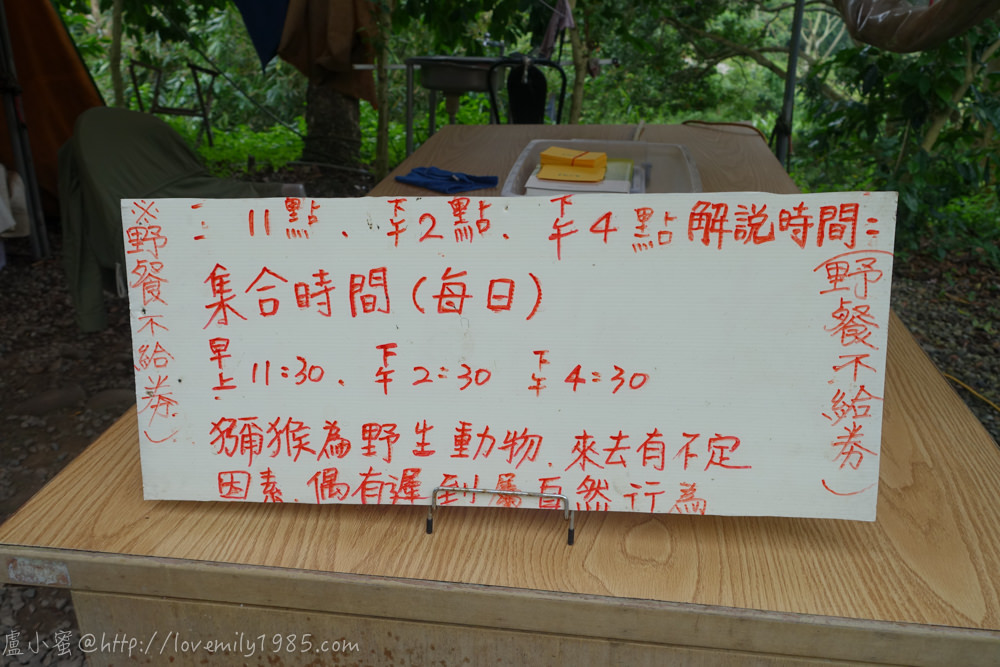 : 11點、下午2點、下午4點 解說時間:
集合時間(每日)
早上11:30、下午2:30 下午4:30
獼猴為野生動物、來去有不定
因素、偶有遲到屬自然行為
※野餐不給券)
(野餐不給券)
盧小蜜@http://lovemily1985.com